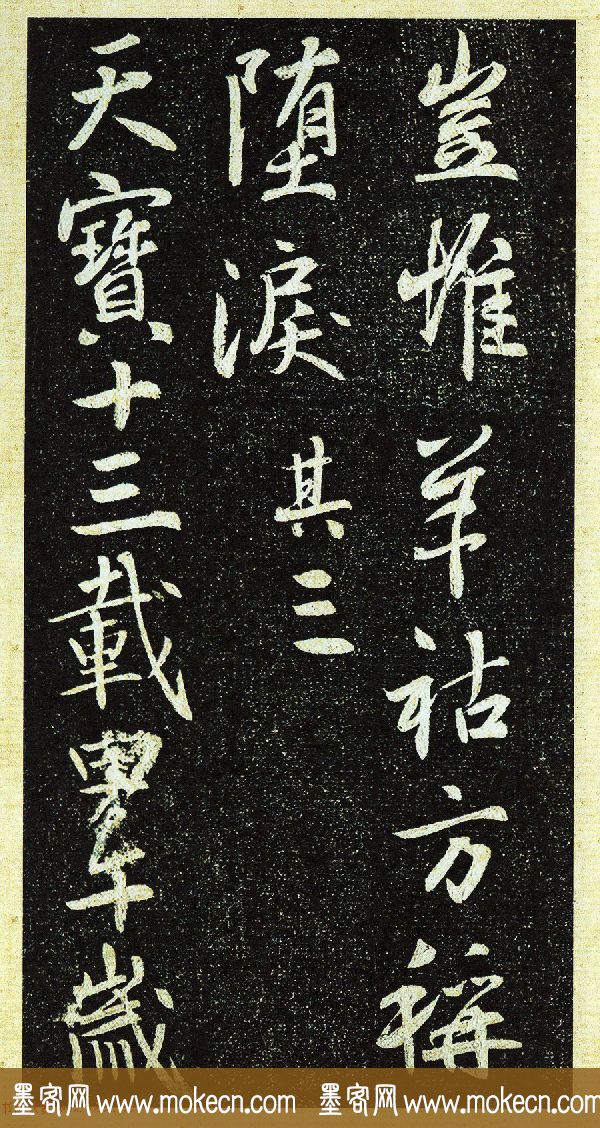 豈惟羊祜方稱
堕淚 其三
天寶十三載午歲
墨客网 www.mokecn.com 墨客网 www.mokecn.com